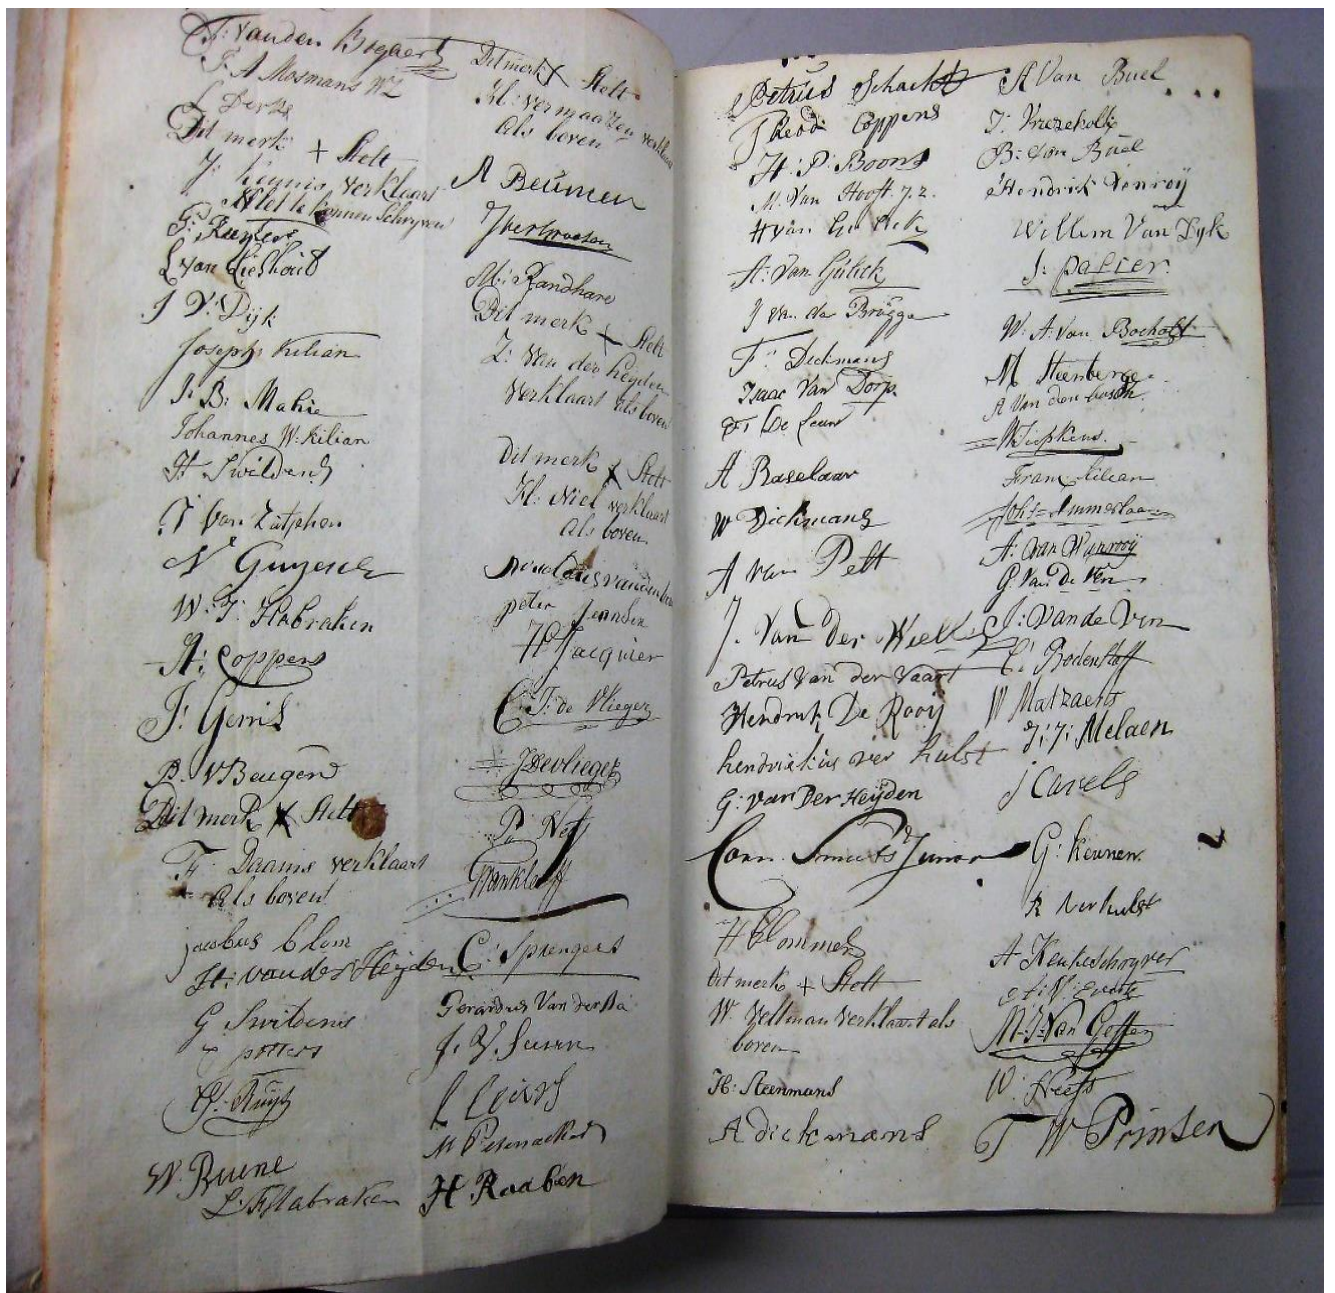 F: vanden Bogaert
F A Mosmans WZ
Derks
Dit merk + Stelt
J: verklaart
Niet te konnen Schryven
G: Ruyters
L van Lieshout
J V: Dijk
Joseph Kilian
J: B: Mahie
Johannes W: Kilian
H Swildens
J van Zutphen
N
W: J: Habraken
A: Coppens
J: Gerrits
P. V Beugen
Dit merk X Stelt
F: Daams verklaart
Als boven
jacobus blom
H: van der Heyden
G Switsenis
potters
G: Kuyts
W: Ruene
L: F Habraken
Dit merk X Stelt
M: Vermaaten verklaart
Als boven
A Beumen
M: Randhare
Dit merk + Stelt
Z: Van der heyden
verklaart als boven
Dit merk X Stelt
H: Niel verklaart
als boven
peter Jansen
H Jacquier
C: J: de Vlieger
J Devlieger
P: Nefs
C: Sprengers
Gerardus Van der Aa
J: V: Suurn
M Pesenacker
H. Raaben
Petrus Schacht
Theod: Coppens
H: P: Boons
M. Van Hooft. J. Z.
H van Gulick
A: Van Gulick
J van der Brugge
F: Dickmans
Isaac Van Dorp.
F: De Leeuw
A Baselaar
W Dickmans
A van Pelt
J. Van Der Wiel
Petrus Van der Vaart
Hendrik De Rooij
hendrikus ver hulst
G: van Der Heijden
Corn. Smits Junior
H Blommes
dit merk + Stelt
W: Veltman verklaart als
boven
H: Steenmans
A dickmans
A Van Buel
J: Vriezekolk
B: van Buel
Hendrik Venroij
Willem Van Dyk
J: pallier.
W: A: van Bocholt
M Steenberge
A Van den bosch
W Siepkens.
Frans Kilian
Johs: Ammerlaan
A: van Wanrooij
G. Van De Ven
J: Van de Ven
C: Bodenstaff
W Matzaerts
J: J: Melaen
j Carels
G: keunen.
R Verhulst
A Keukeschryver
M: J: Van Geffen
W: Neefs
T W Prinsen